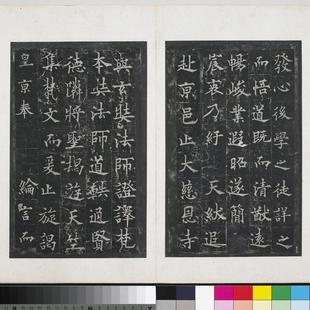 發心後學之徒詳之
而悟道既而清猷遠
暢峻業遐昭遂簡
宸衷乃紆 天綍追
赴京邑止大慈恩寺
與玄奘法師證譯梵
本奘法師道軼通賢
德隣將聖揭遊天竺
集梵文而爰止旋謁
皇京奉 綸言而